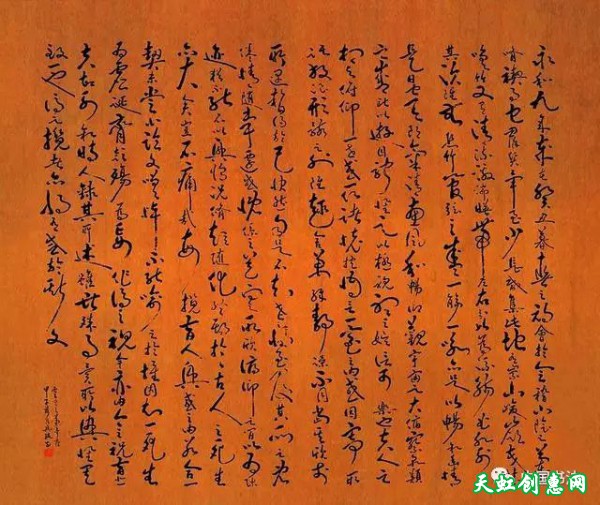 永和九年歲在癸丑暮春之初會於會稽山陰之蘭亭
脩禊事也群賢畢至少長咸集此地有崇山峻領茂林
脩竹又有清流激湍映帶左右引以為流觴曲水列坐
其次雖無絲竹管弦之盛一觴一詠亦足以暢敘幽情
是日也天朗氣清惠風和暢仰觀宇宙之大俯察品類
之盛所以遊目騁懷足以極視聽之娛信可樂也夫人之
相與俯仰一世或取諸懷抱悟言一室之內或因寄所
託放浪形骸之外雖趣舍萬殊靜躁不同當其欣於
所遇暫得於己快然自足不知老之將至及其所之既
倦情隨事遷感慨係之矣向之所欣俯仰之間以為陳
迹猶不能不以之興懷況脩短隨化終期於盡古人云死生
亦大矣豈不痛哉每覽昔人興感之由若合一
契未嘗不臨文嗟悼不能喻之於懷固知一死生
為虛誕齊彭殤為妄作後之視今亦由今之視昔悲
夫故列敘時人錄其所述雖世殊事異所以興懷其
致一也後之覽者亦將有感於斯文
中国书法
天虹创意网